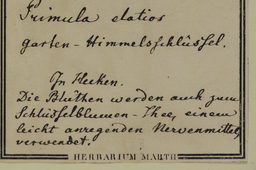 Primula elatior
Garten-Himmelsschlüssel.
In Hecken.
Die Blüthen werden auch zum
Schlüsselblumen-Thee, einem
leicht anregenden Nervenmittel,
verwendet.
HERBARIUM MARTH